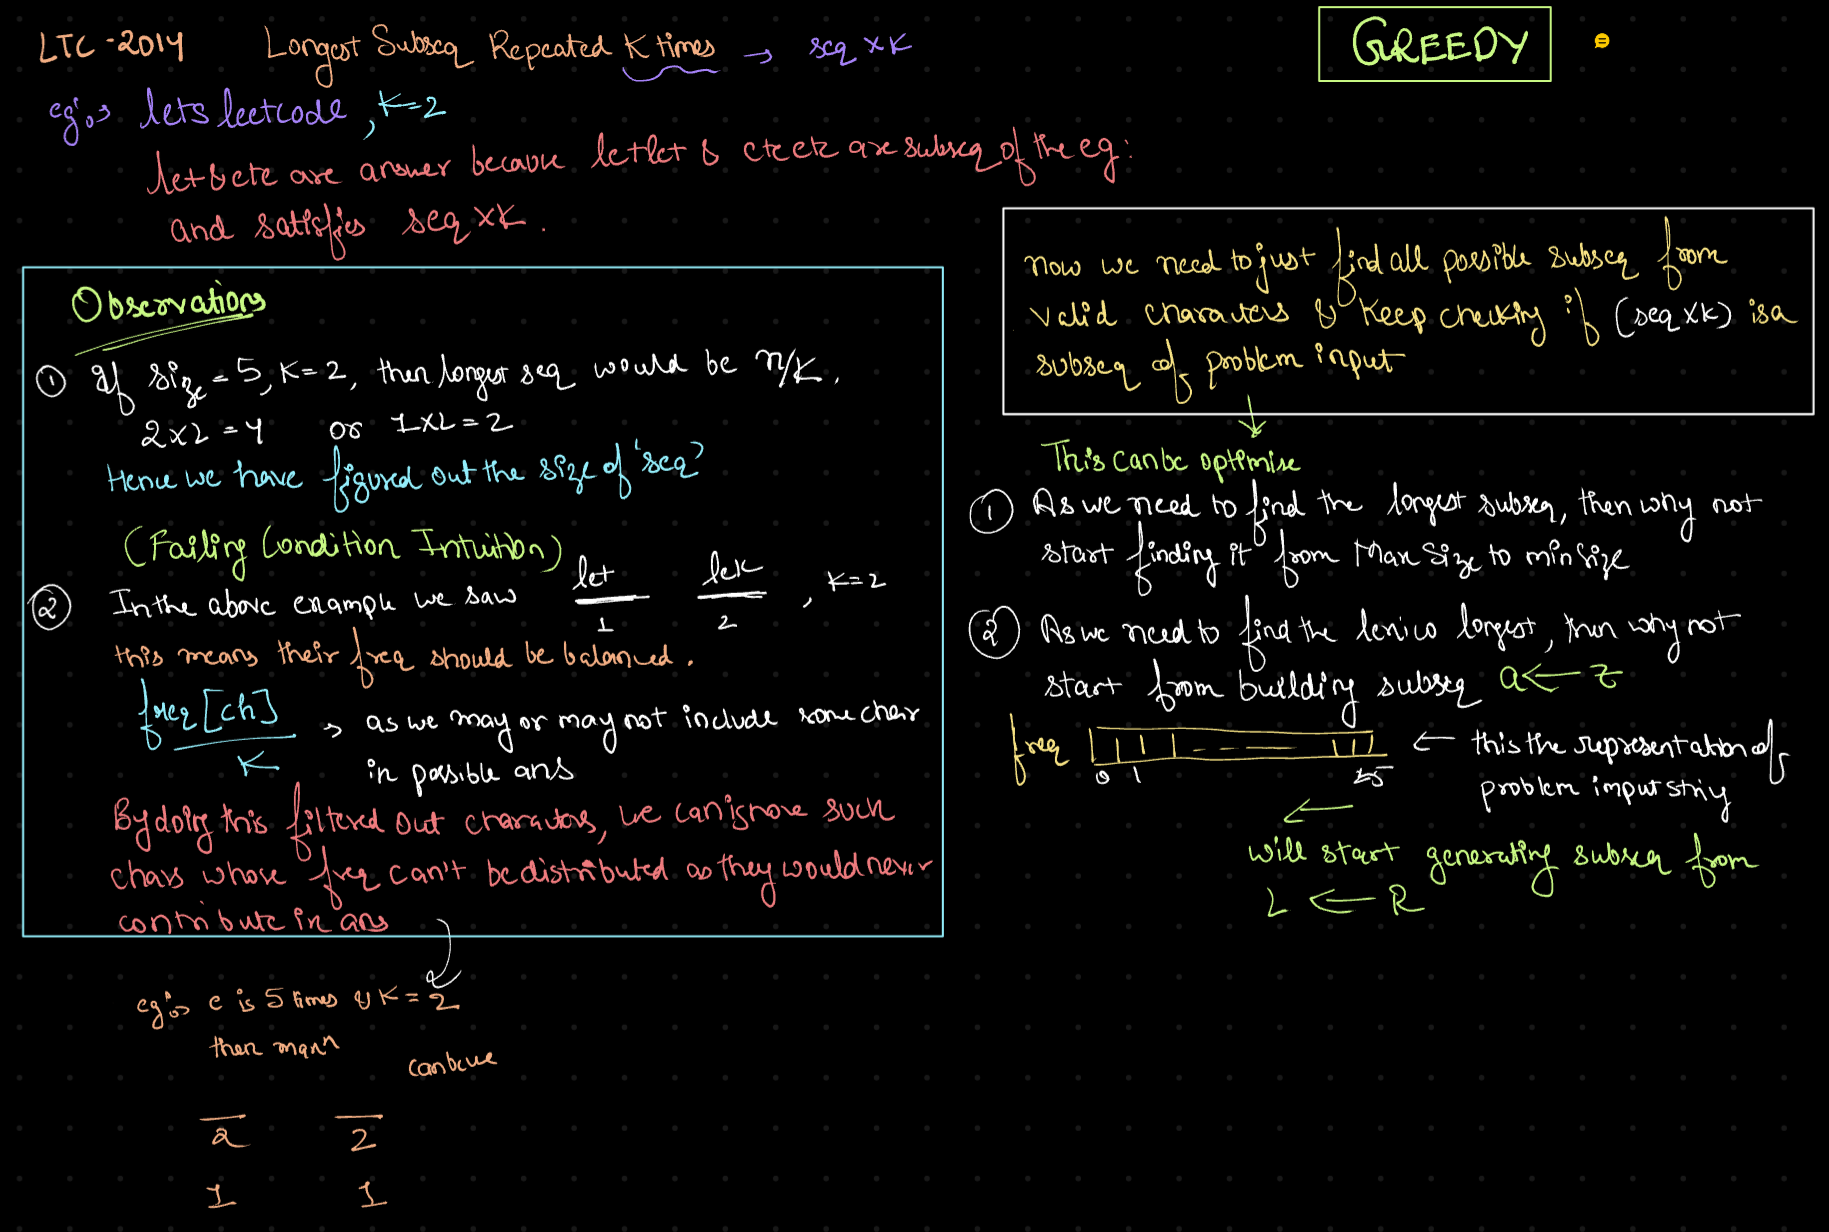 LTC-2014 Longest Subseq Repeated K times → seq x K
GREEDY
eg:→ letsleetcode, K=2
let & ete are answer because letlet & eteete are subseq of the eg:
and satisfies seq x K.
Observations
① If size = 5, K=2, then longest seq would be n/K.
2x2=4 or 1x2=2
Hence we have figured out the size of 'seq'
(Failing Condition Intuition)
② In the above example we saw let lek , K=2
1 2
this means their freq should be balanced.
freq[ch]
K
→ as we may or may not include some char
in possible ans
By doing this filtered out characters, we can ignore such
chars whose freq can't be distributed as they would never
contribute in ans
eg:→ e is 5 times & K=2
then max
can be
2 2
1 1
now we need to just find all possible subseq from
valid characters & keep checking if (seq x K) is a
subseq of problem input
This can be optimise
① As we need to find the longest subseq, then why not
start finding it from Max Size to min Size
② As we need to find the lexico longest, then why not
start from building subseq a ← z
freq ← this the representation of
0 1 25
problem input string
←
will start generating subseq from
L ← R